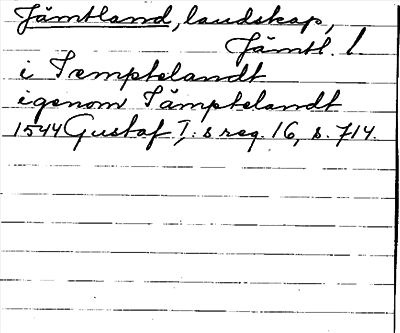 Jämtland, landskap,
Jämtl. l
i Iemptelandt
igenom Iämptelandt
1544 Gustaf I:s reg. 16, s. 714.